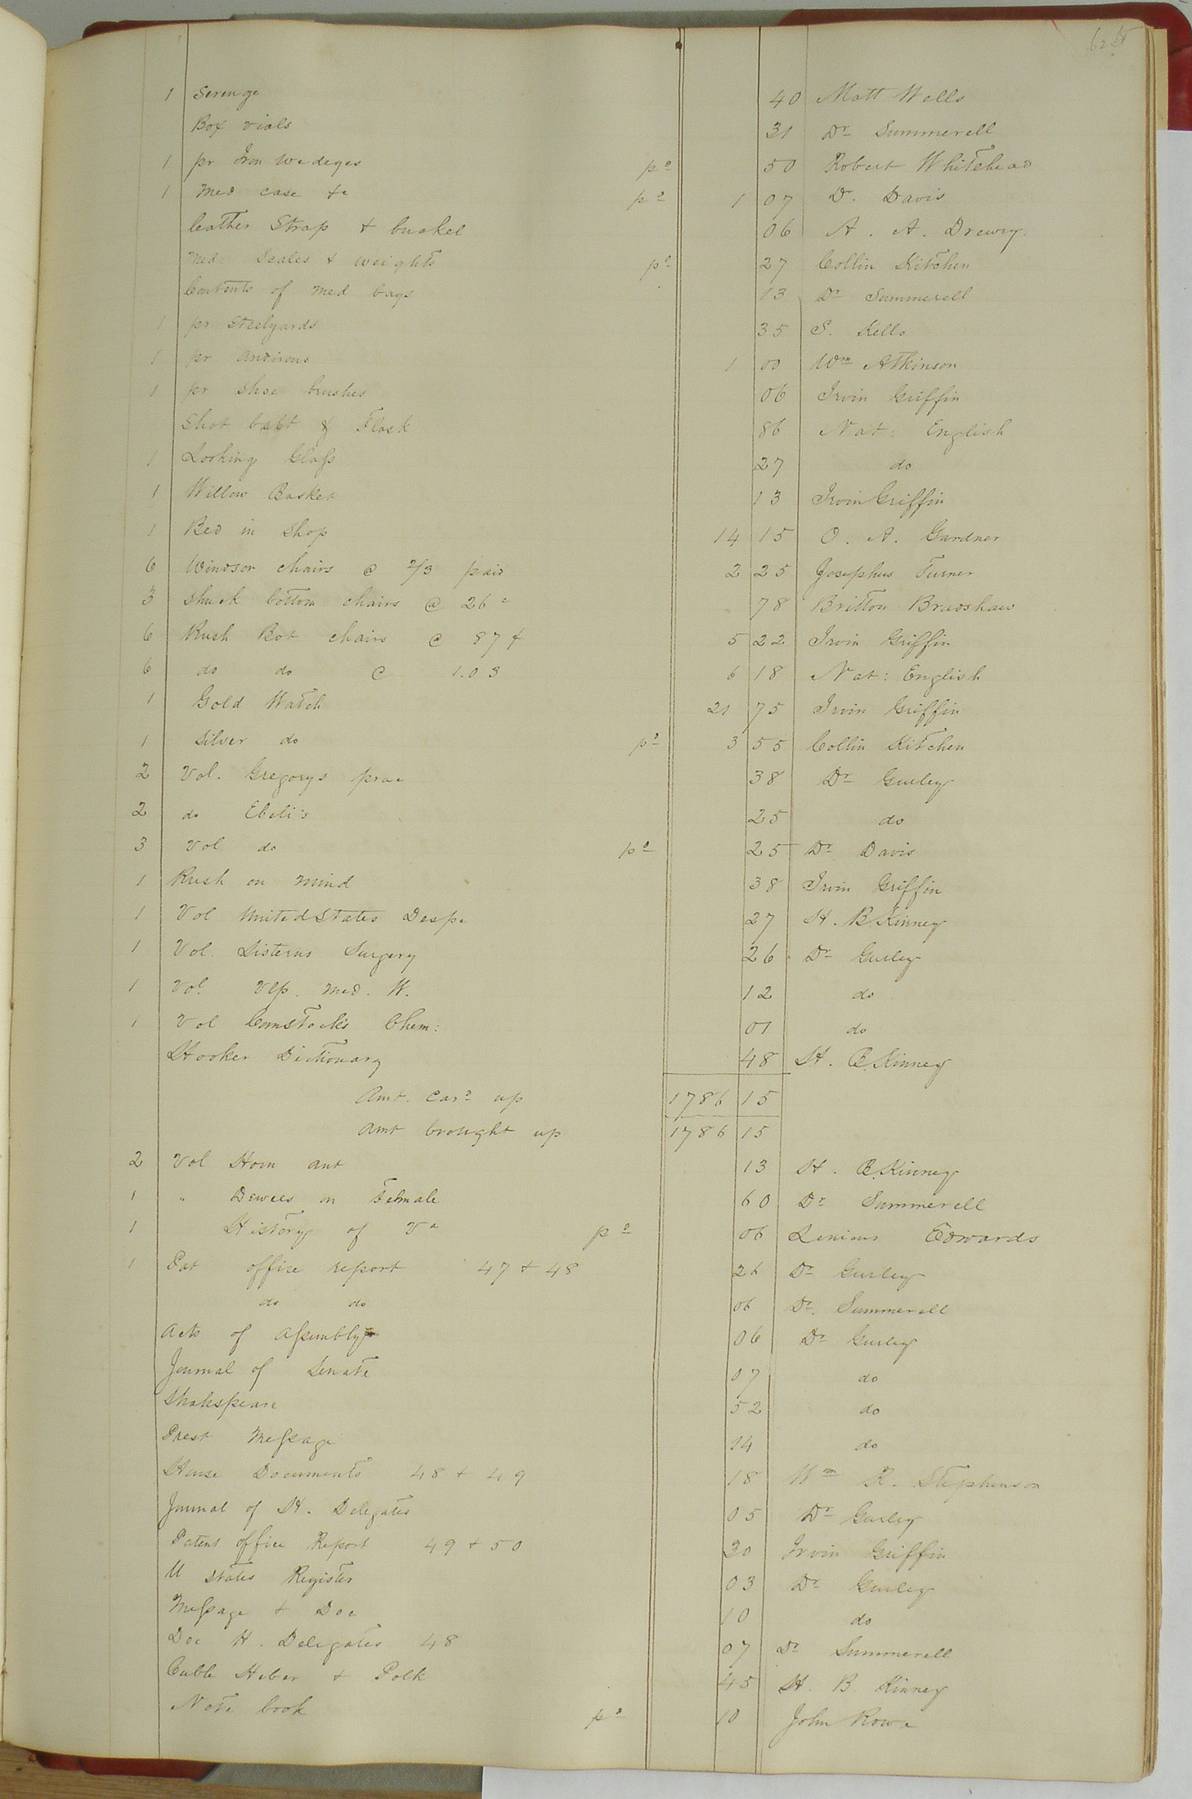 1 Serenge 40 Matt Wells
Box vials 31 Dr Summerell
1 pr Iron Wedeges pd 50 Robert Whitehead
1 Med case &c pd 1 07 D. Davis
leather Strap & buckel 06 A. A. Drewry
Med Scales & weights pd 27 Collin Kitchen
Contents of Med bags 13 Dr Summerell
1 pr Steelyards 35 S. Kello
1 pr Andirons 1 00 Wm Atkinson
1 pr Shoe brushes 06 Irvin Griffin
Shot belt & Flask 86 Nat: English
1 Looking Glass 27 do
1 Willow Basket 13 Irvin Griffin
1 Bed in Shop 14 15 O. A. Gardner
6 Windsor chairs @ 2/3 paid 2 25 Josephus Turner
3 Shuck bottom chairs @ 26 c 78 Britton Bradshaw
6 Rush Bot chairs @ 87 4 5 22 Irvin Griffin
6 do do @ 1.03 6 18 Nat: English
1 Gold Watch 21 75 Irvin Griffin
1 Silver do pd 3 55 Collin Kitchen
2 Vol. Gregorys prac 38 Dr Gurley
2 do Eberl's 25 do
3 Vol do pd 25 Dr Davis
1 Rush on Mind 38 Irvin Griffin
1 Vol United States Despe 27 H. B. Kinney
1 Vol. Listerns Surgery 26 Dr Gurley
1 Vol Med. 12 do
1 Vol Comstock's Chem: 01 do
Hooker Dictionary 48 H. B. Kinney
Amt. card up 1786 15
Amt brought up 1786 15
2 Vol Horn ant 13 H. B. Kinney
1 " Dewees on Female 60 Dr Summerell
1 History of Va pd 06 Edwards
1 Pat office report 47 & 48 26 Dr Gurley
do do 06 Dr. Summerell
Acts of Assembly 06 Dr Gurley
Journal of Senate 07 do
Shakspear 52 do
Prest Message 14 do
House Documents 48 & 49 18 Wm R. Stephenson
Journal of H. Delegates 05 Dr Gurley
Patent office Report 49 & 50 30 Irvin Griffin
U States Register 03 Dr Gurley
Message & Doc 10 do
Doc H. Delegates 48 07 Dr Summerell
Heber & Polk 45 H. B. Kinney
Note book pd 10 John Rowe